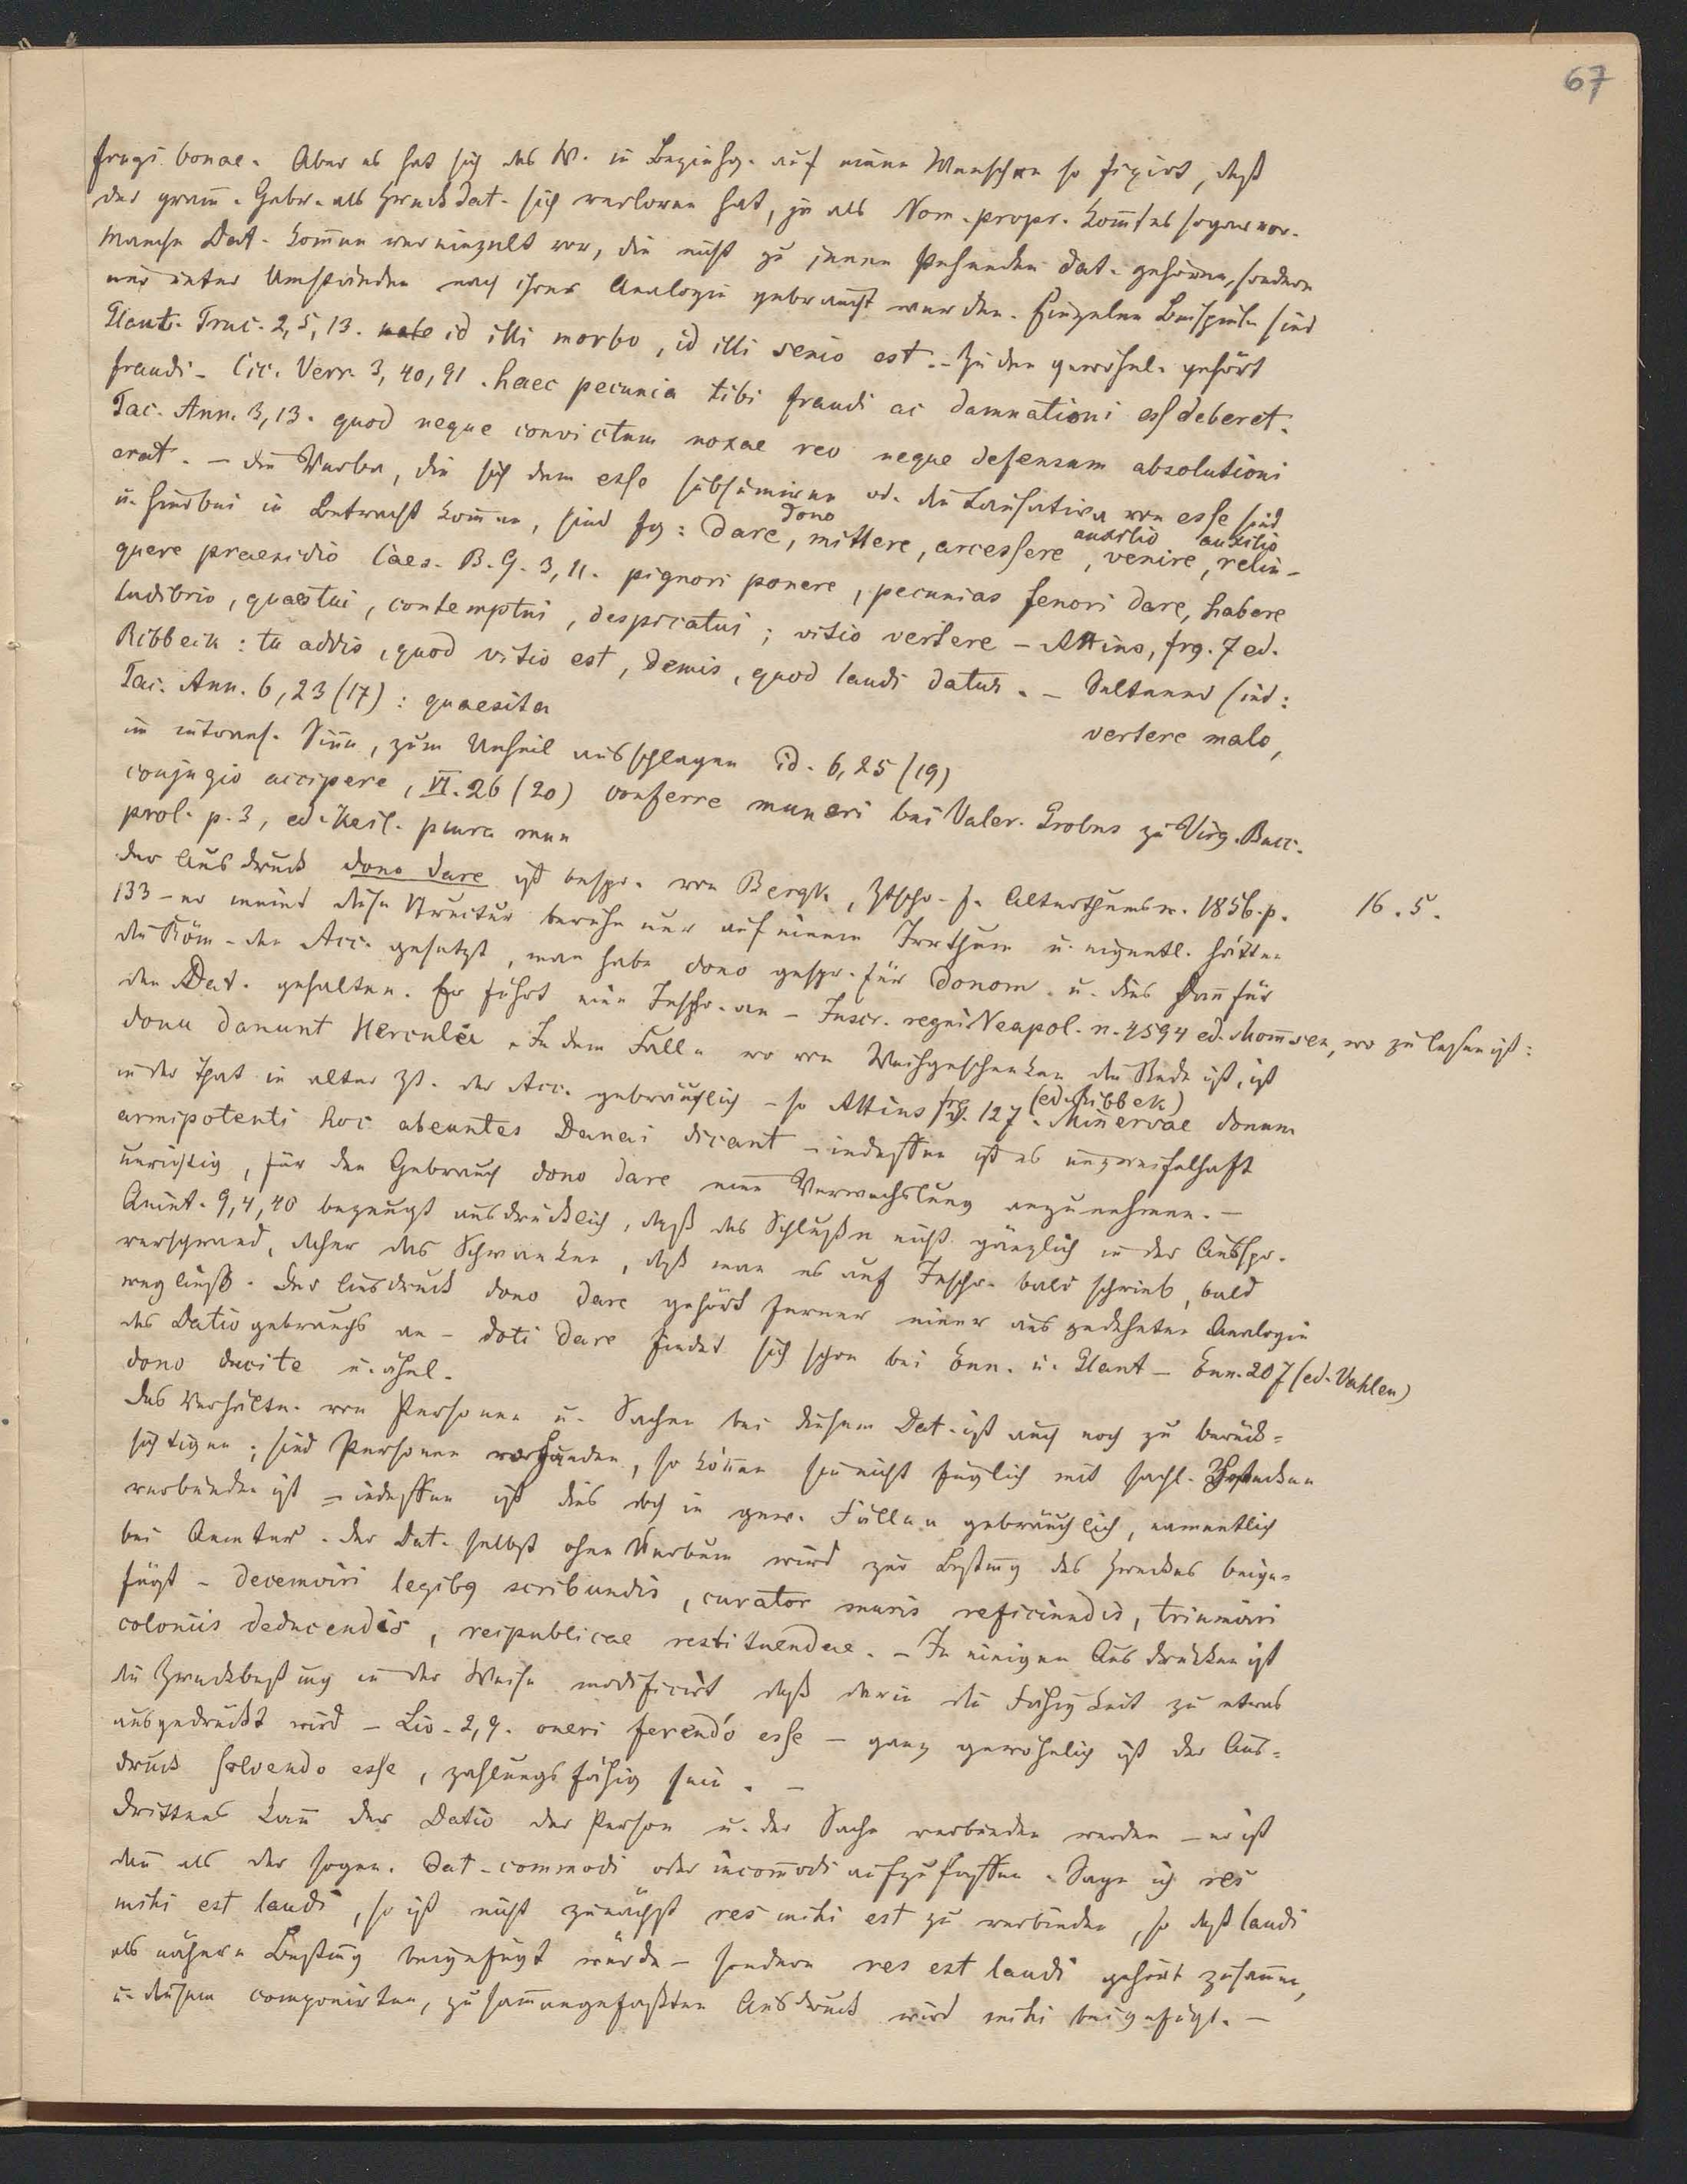 67
frugi bonae. Aber es hat sich das W. in Beziehg. auf einen Menschen so fixirt, daß
der gram̅. Gebr. als Zweckdat. sich verloren hat, ja als Nom. propr. kom̅t es sogar vor.
Manche Dat. kom̅en vereinzelt vor, die nicht zu jenen stehenden Dat. gehören, sondern
nur unter Umständen nach ihrer Analogie gebraucht werden. Einzelne Beispiele sind
Plaut. Truc. 2, 5, 13. male id illi morbo, id illi senio est. – Zu den gewöhnl. gehört
fraudi – Cic. Verr. 3, 40, 91. haec pecunia tibi fraudi ac damnationi esse deberet.
Tac. Ann. 3, 13. quod neque convictum noxae reo neque defensum absolutioni
erat. – Die Verba, die sich dem esse subsumiren od. die Causativa von esse sind
u. hierbei in Betracht kom̅en, sind fg: dare dono, mittere, arcessere auxilio, venire auxilio, relin-
quere praesidio Caes. B. G. 3, 11. pignori ponere, pecunias fenori dare, habere
ludibrio, quaestui, contemptui, despicatui; vitio vertere – Attius, frg. 7 ed.
Ribbeck: tu addis, quod vitio est, demis, quod laudi datur. – Seltener sind:
Tac. Ann. 6, 23 (17): quaesita vertere malo,
im intrans. Sinn, zum Unheil ausschlagen id. 6, 25 (19)
conjugio accipere, VI. 26 (20) conferre muneri bei Valer. Probus zu Virg. Bucc.
prol. p. 3, ed. Keil.
Der Ausdruck dono dare ist bespr. von Bergk, Ztschr. f. Alterthumsw. 1856. p. 16. 5.
133 – er meint diese Structur beruhe nur auf einem Irrthum u. eigentl. hätten
die Röm. den Acc. gesetzt, man habe dono gespr. für donom. u. dies dan̅ für
den Dat. gehalten. Er führt eine Inschr. an – Inscr. regni Neapol. n. 4594 ed. Mom̅sen, wo zu lesen ist:
donu danunt Hercolei. In dem Falle wo von Weihgeschenken die Rede ist, ist
in der That in alter Zt. der Acc. gebräuchlich – so Attius frg. 127 (ed. Ribbek). Minervae donum
armipotenti hoc abeuntes Danai dicant – indessen ist es unzweifelhaft
unrichtig, für den Gebrauch dono dare eine Verwechslung anzunehmen. –
Quint. 9, 4, 40 bezeugt ausdrücklich, daß das Schlußm nicht gänzlich in der Ausspr.
verschwand, daher das Schwanken, daß man es auf Inschr. bald schrieb, bald
wegließ. Der Ausdruck dono dare gehört ferner einer ausgedehnten Analogie
des Dativgebrauchs an – doti dare findet sich schon bei Enn. u. Plaut – Enn. 207 (ed. Vahlen)
dono ducite u. ähnl.
Das Verhältn. von Personen u. Sachen bei diesem Dat. ist auch noch zu berück-
sichtigen; sind Personen vorhanden, so kön̅en sie nicht füglich mit sachl. Zwecken
verbunden ist – indessen ist dies doch in gew. Fällen gebräuchlich, namentlich
bei Aemtern. Der Dat. selbst ohne Verbum wird zur Bestim̅g des Zweckes beige-
fügt – decemviri legibus scribundis, curator muris reficiundis, triumviri
coloniis deducendis, reipublicae restituendae. – In einigen Ausdrücken ist
die Zweckbestim̅ung in der Weise modificirt daß darin die Fähigkeit zu etwas
ausgedrückt wird – Liv. 2, 9. oneri ferendo esse – ganz gewöhnlich ist der Aus-
druck solvendo esse, zahlungsfähig sein. –
Drittens kan̅ der Dativ der Person u. der Sache verbunden werden – er ist
dan̅ als der sogen. Dat. commodi oder incom̅odi aufzufassen. Sage ich res
mihi est laudi, so ist nicht zunächst res mihi est zu verbinden, so daß laudi
als nähere Bestim̅g beigefügt würde – sondern res est laudi gehört zusam̅en,
u. diesem componirten, zusam̅engefaßten Ausdruck wird mihi beigefügt. –